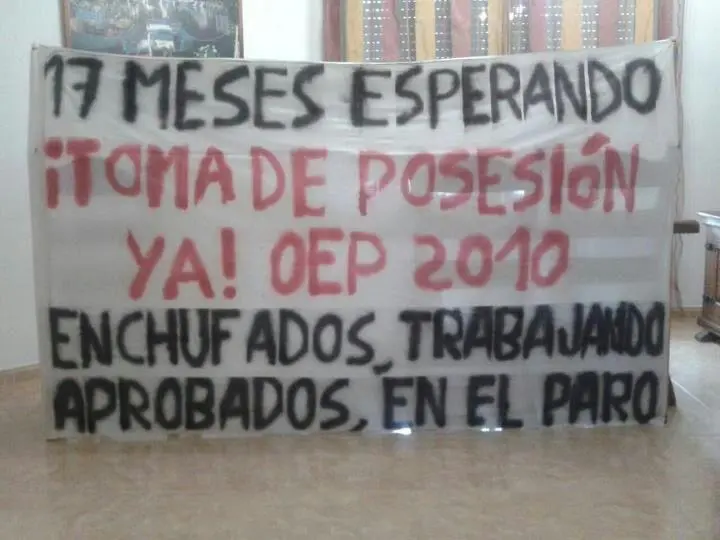 17 MESES ESPERANDO
¡TOMA DE POSESIÓN
YA! OEP 2010
ENCHUFADOS, TRABAJANDO
APROBADOS, EN EL PARO